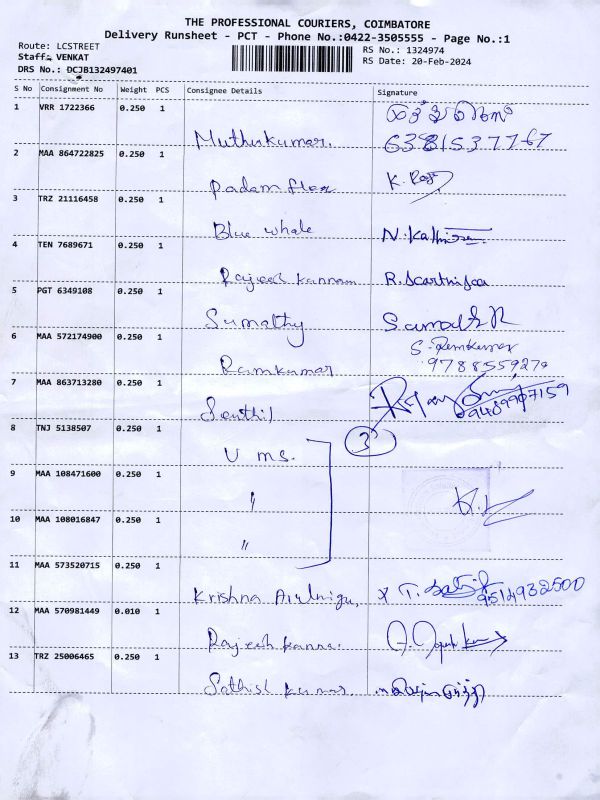 THE PROFESSIONAL COURIERS, COIMBATORE
Delivery Runsheet - PCT - Phone No.:0422-3505555 - Page No.:1
Route: LCSTREET
RS No.: 1324974
Staff: VENKAT
RS Date: 20-Feb-2024
DRS No.: DCJB132497401
S No Consignment No Weight PCS Consignee Details Signature
1 VRR 1722366 0.250 1
Muthukumar. 6381537767
2 MAA 864722825 0.250 1
Padam flex K. Raj
3 TRZ 21116458 0.250 1
Blue whale
4 TEN 7689671 0.250 1
Rajeesh kannan
5 PGT 6349108 0.250 1
Sumathy
6 MAA 572174900 0.250 1
S. Ramkumar
Ramkumar 9788559270
7 MAA 863713280 0.250 1
Senthil 9489907159
8 TNJ 5138507 0.250 1
U ms. 3
9 MAA 108471600 0.250 1
"
10 MAA 108016847 0.250 1
"
11 MAA 573520715 0.250 1
Krishna 9514932500
12 MAA 570981449 0.010 1
Rajeesh
13 TRZ 25006465 0.250 1
Sathish kumar.